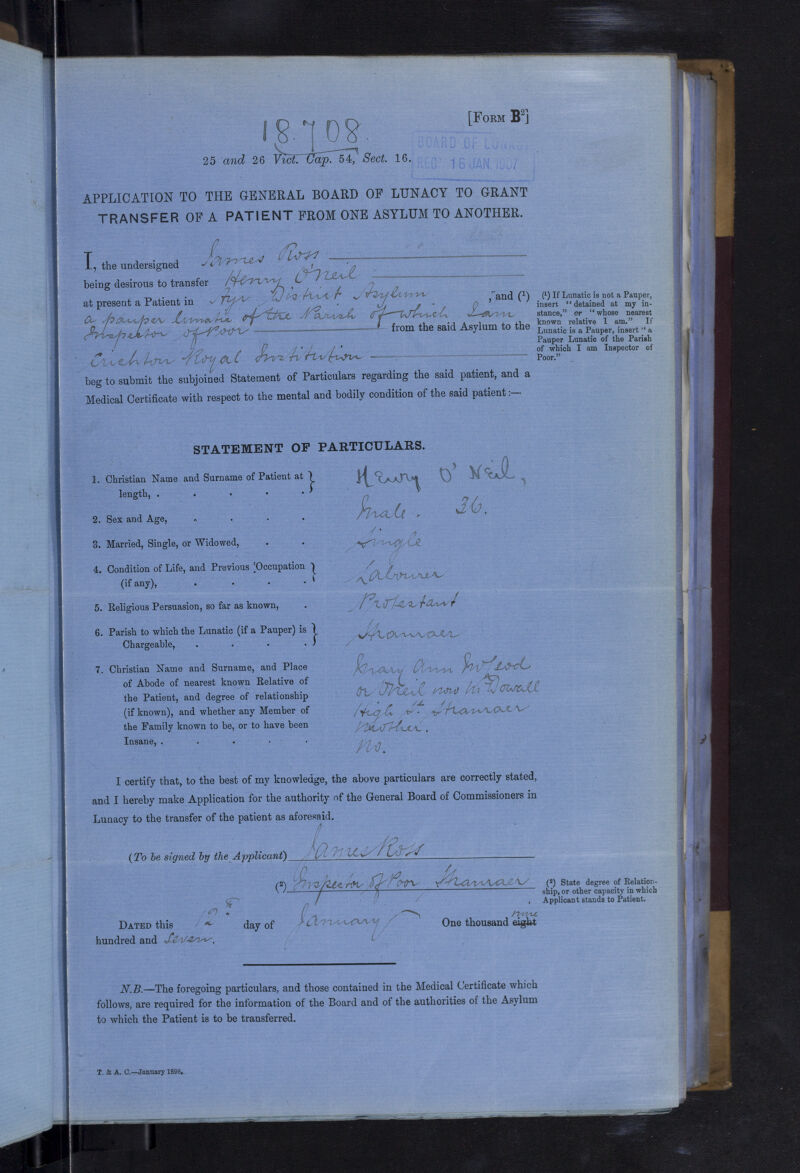 [FORM B2]
18.708.
BOARD OF LUNACY
25 and 26 Vict. Cap. 54, Sect. 16.
REG. 16 JAN. 1907
APPLICATION TO THE GENERAL BOARD OF LUNACY TO GRANT
TRANSFER OF A PATIENT FROM ONE ASYLUM TO ANOTHER.
I, the undersigned James Ross
being desirous to transfer Henry O'Neil
at present a Patient in Ayr District Asylum, and (1)
a pauper lunatic of the Parish of which I am
Inspector of Poor from the said Asylum to the
Crichton Royal Institution
beg to submit the subjoined Statement of Particulars regarding the said patient, and a
Medical Certificate with respect to the mental and bodily condition of the said patient:—
(1) If Lunatic is not a Pauper,
insert "detained at my in-
stance," or "whose nearest
known relative I am." If
Lunatic is a Pauper, insert "a
Pauper Lunatic of the Parish
of which I am Inspector of
Poor."
STATEMENT OF PARTICULARS.
1. Christian Name and Surname of Patient at length, . . . . . Henry O'Neil,
2. Sex and Age, . . . . Male. 36.
3. Married, Single, or Widowed, . . Single
4. Condition of Life, and Previous Occupation
(if any), . . . . Labourer
5. Religious Persuasion, so far as known, . Protestant
6. Parish to which the Lunatic (if a Pauper) is
Chargeable, . . . . Stranraer
7. Christian Name and Surname, and Place Mary Ann McLeod
of Abode of nearest known Relative of or O'Neil now McDowall
the Patient, and degree of relationship
(if known), and whether any Member of High St. Stranraer
the Family known to be, or to have been Mother.
Insane, . . . . . No.
I certify that, to the best of my knowledge, the above particulars are correctly stated,
and I hereby make Application for the authority of the General Board of Commissioners in
Lunacy to the transfer of the patient as aforesaid.
(To be signed by the Applicant) James Ross
(2) Inspector of Poor Stranraer
(2) State degree of Relation-
ship, or other capacity in which
Applicant stands to Patient.
DATED this 12th day of January One thousand eight nine
hundred and Seven.
N.B.—The foregoing particulars, and those contained in the Medical Certificate which
follows, are required for the information of the Board and of the authorities of the Asylum
to which the Patient is to be transferred.
T. & A. C.—January 1898.